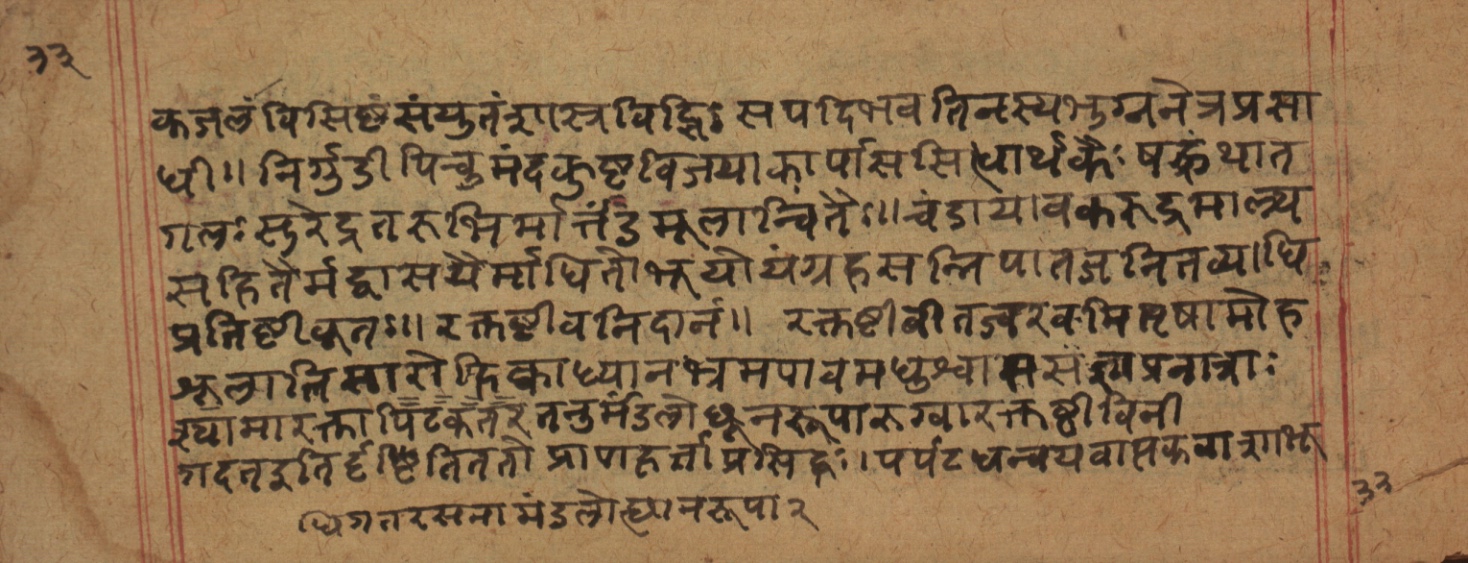 ३३
कज्जलं विसिष्टं संयुतं शास्त्रविद्भिः सपदि भवति नस्य भुग्ननेत्रप्रसा
धी॥ निर्गुडी पिचुमंदकुष्टविजयाकार्पाससिध्धार्थकैः षड्ग्रंथात
गलः सुरेद्रतरुभिर्मार्त्तंडमूलान्वितैः॥ चंडायावकरुद्रमाल्य
सहितैर्मद्वासयैर्माधितो भूयोयं ग्रहसन्निपातजनितव्याधि
प्रतिष्टीकृतः॥ रक्तष्टीवनिदानं॥ रक्तष्टीवीतज्वरवमितृषामोह
शूलातिसारोहिक्काध्यानभ्रमपावमथुश्वाससंज्ञाप्रनाशाः
श्यामारक्तापिटकतरतनुर्मंडलोथूनरूपारुग्वारक्तष्ठीविनी
गदतइतिर्दृष्टितिततो प्राणहर्त्ता प्रसिद्धः। पर्पटधन्वयवासकवाशाभू
३३
धिगतरसनामंडलोत्थानरूपा२